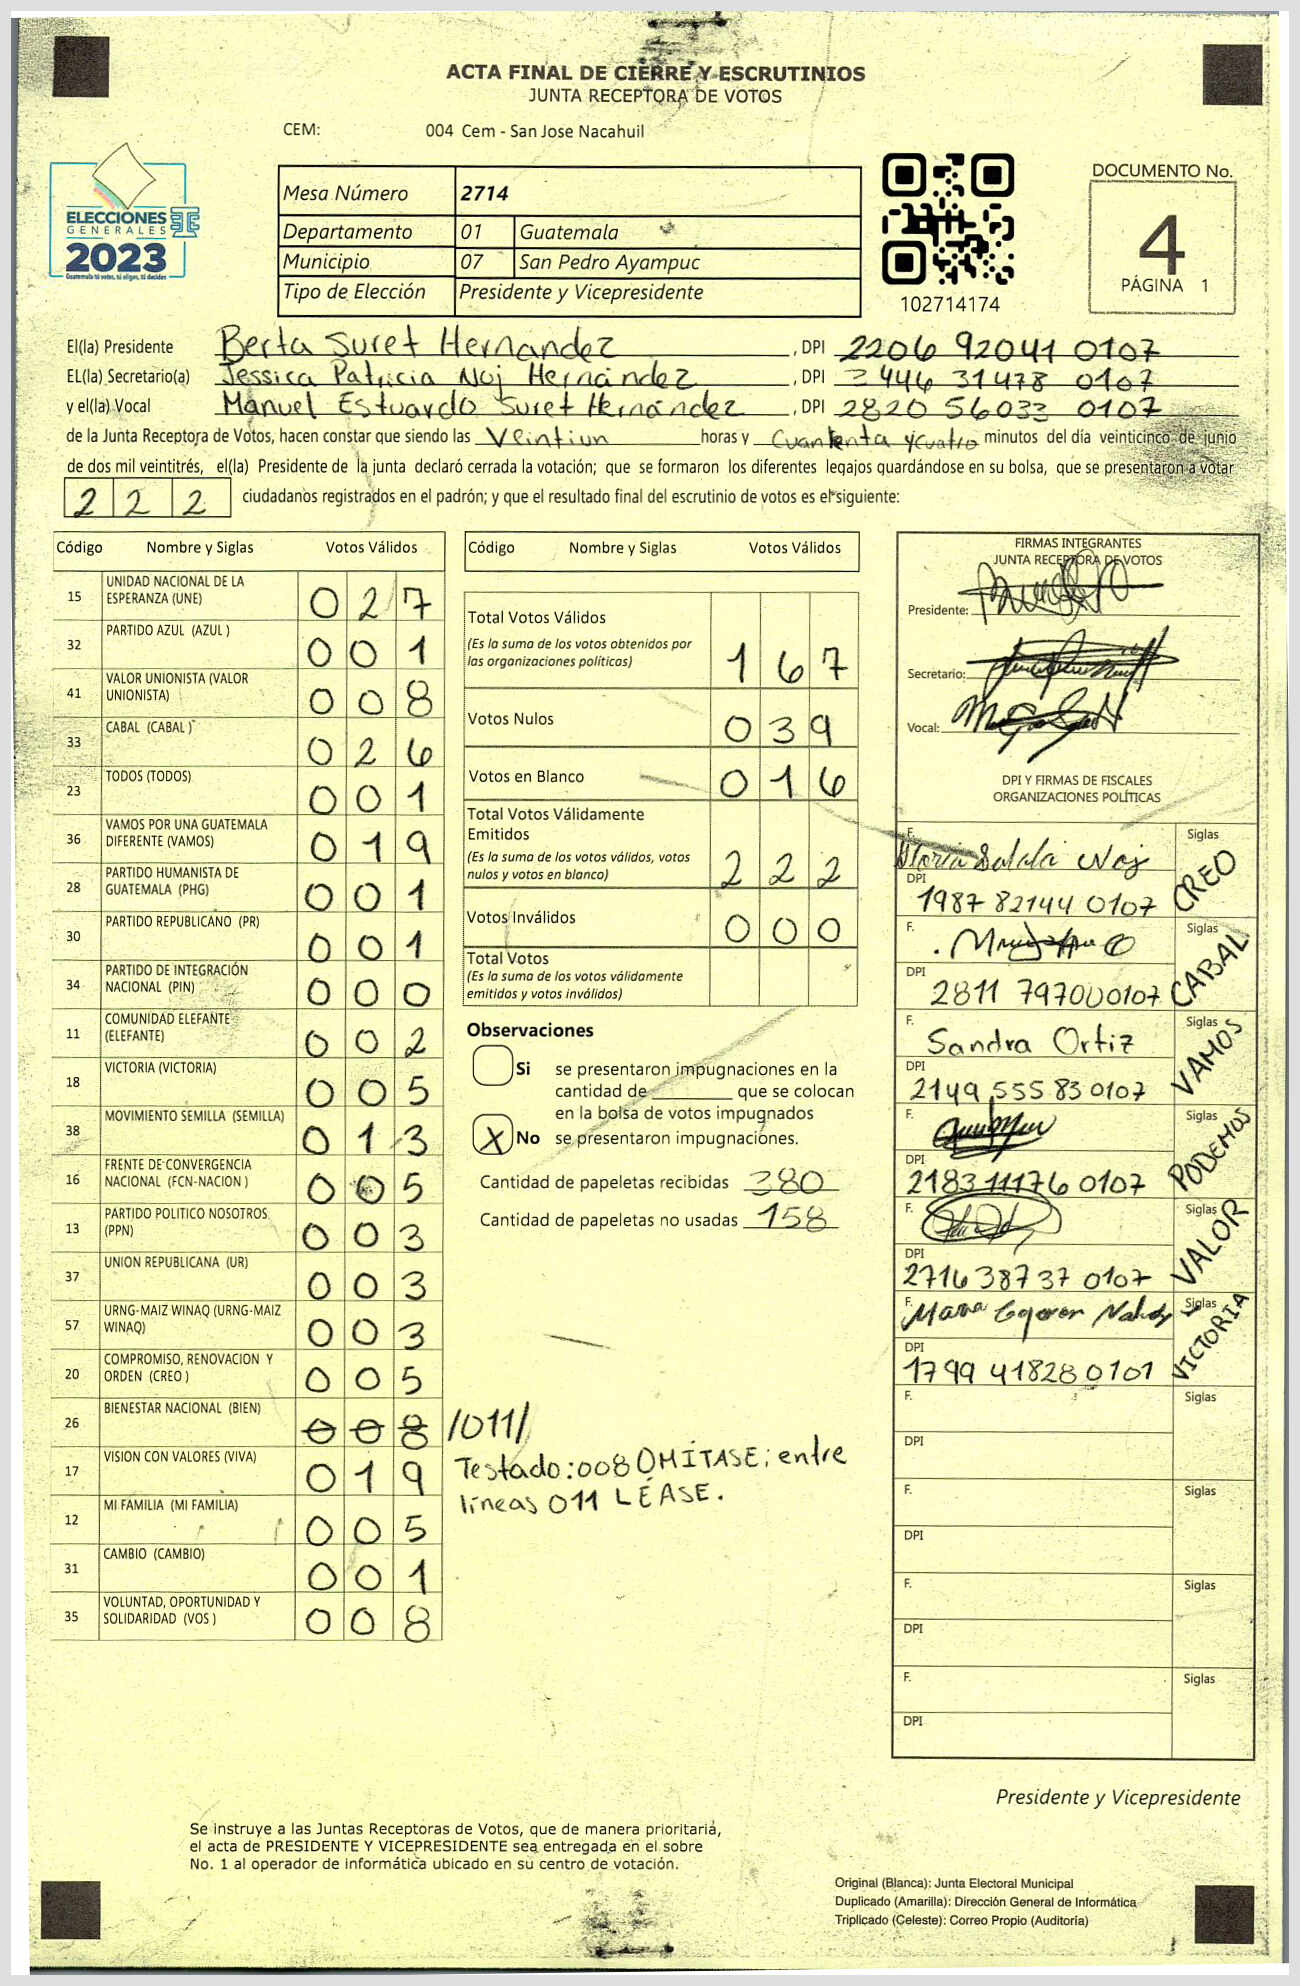 ACTA FINAL DE CIERRE Y ESCRUTINIOS
JUNTA RECEPTORA DE VOTOS
CEM: 004 Cem - San Jose Nacahuil
ELECCIONES
GENERALES
2023
Guatemala tú votas, tú eliges, tú decides
Mesa Número 2714
Departamento 01 Guatemala
Municipio 07 San Pedro Ayampuc
Tipo de Elección Presidente y Vicepresidente
102714174
DOCUMENTO No.
4
PÁGINA 1
El(la) Presidente Berta Suret Hernandez, DPI 2206 92041 0107
EL(la) Secretario(a) Jessica Patricia Noj Hernández, DPI 3446 31478 0107
y el(la) Vocal Manuel Estuardo Suret Hernández, DPI 2820 56033 0107
de la Junta Receptora de Votos, hacen constar que siendo las Veintiun horas y Cuantenta y cuatro minutos del día veinticinco de junio
de dos mil veintitrés, el(la) Presidente de la junta declaró cerrada la votación; que se formaron los diferentes legajos quardándose en su bolsa, que se presentaron a votar
222 ciudadanos registrados en el padrón; y que el resultado final del escrutinio de votos es el siguiente:
Código Nombre y Siglas Votos Válidos
15 UNIDAD NACIONAL DE LA ESPERANZA (UNE) 027
32 PARTIDO AZUL (AZUL ) 001
41 VALOR UNIONISTA (VALOR UNIONISTA) 008
33 CABAL (CABAL ) 026
23 TODOS (TODOS) 001
36 VAMOS POR UNA GUATEMALA DIFERENTE (VAMOS) 019
28 PARTIDO HUMANISTA DE GUATEMALA (PHG) 001
30 PARTIDO REPUBLICANO (PR) 001
34 PARTIDO DE INTEGRACIÓN NACIONAL (PIN) 000
11 COMUNIDAD ELEFANTE (ELEFANTE) 002
18 VICTORIA (VICTORIA) 005
38 MOVIMIENTO SEMILLA (SEMILLA) 013
16 FRENTE DE CONVERGENCIA NACIONAL (FCN-NACION ) 005
13 PARTIDO POLITICO NOSOTROS (PPN) 003
37 UNION REPUBLICANA (UR) 003
57 URNG-MAIZ WINAQ (URNG-MAIZ WINAQ) 003
20 COMPROMISO, RENOVACION Y ORDEN (CREO ) 005
26 BIENESTAR NACIONAL (BIEN) 008 /011/
17 VISION CON VALORES (VIVA) 019
12 MI FAMILIA (MI FAMILIA) 005
31 CAMBIO (CAMBIO) 001
35 VOLUNTAD, OPORTUNIDAD Y SOLIDARIDAD (VOS ) 008
Testado: 008 OMÍTASE; entre
líneas 011 LÉASE.
Código Nombre y Siglas Votos Válidos
Total Votos Válidos 167
(Es la suma de los votos obtenidos por
las organizaciones políticas)
Votos Nulos 039
Votos en Blanco 016
Total Votos Válidamente
Emitidos
(Es la suma de los votos válidos, votos
nulos y votos en blanco) 222
Votos Inválidos 000
Total Votos
(Es la suma de los votos válidamente
emitidos y votos inválidos)
Observaciones
Si se presentaron impugnaciones en la
cantidad de ________ que se colocan
en la bolsa de votos impugnados
X No se presentaron impugnaciones.
Cantidad de papeletas recibidas 380
Cantidad de papeletas no usadas 158
FIRMAS INTEGRANTES
JUNTA RECEPTORA DE VOTOS
Presidente:
Secretario:
Vocal:
DPI Y FIRMAS DE FISCALES
ORGANIZACIONES POLÍTICAS
F. Noj Siglas CREO
DPI 1987 82144 0107
F. Siglas CABAL
DPI 2811 79700 0107
F. Sandra Ortiz Siglas VAMOS
DPI 2149 555 83 0107
F. Siglas PODEMOS
DPI 2183 11176 0107
F. Siglas VALOR
DPI 2716 38737 0107
F. Maria Siglas VICTORIA
DPI 1799 41828 0101
F. Siglas
DPI
F. Siglas
DPI
F. Siglas
DPI
F. Siglas
DPI
Presidente y Vicepresidente
Se instruye a las Juntas Receptoras de Votos, que de manera prioritaria,
el acta de PRESIDENTE Y VICEPRESIDENTE sea entregada en el sobre
No. 1 al operador de informática ubicado en su centro de votación.
Original (Blanca): Junta Electoral Municipal
Duplicado (Amarilla): Dirección General de Informática
Triplicado (Celeste): Correo Propio (Auditoría)